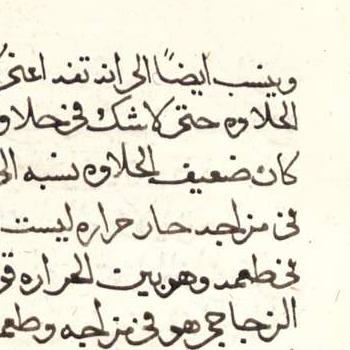 وينسب ايضًا الى انه تفه اعنى
الحلاوه حتى لا شك فى حلاو
كان ضعيف الحلاوه ينسبه الى
فى مزاجه حار حراره ليست
فى طعمه وهو بين الحراره قو
الزجاجى هو فى مزاجه وطعم